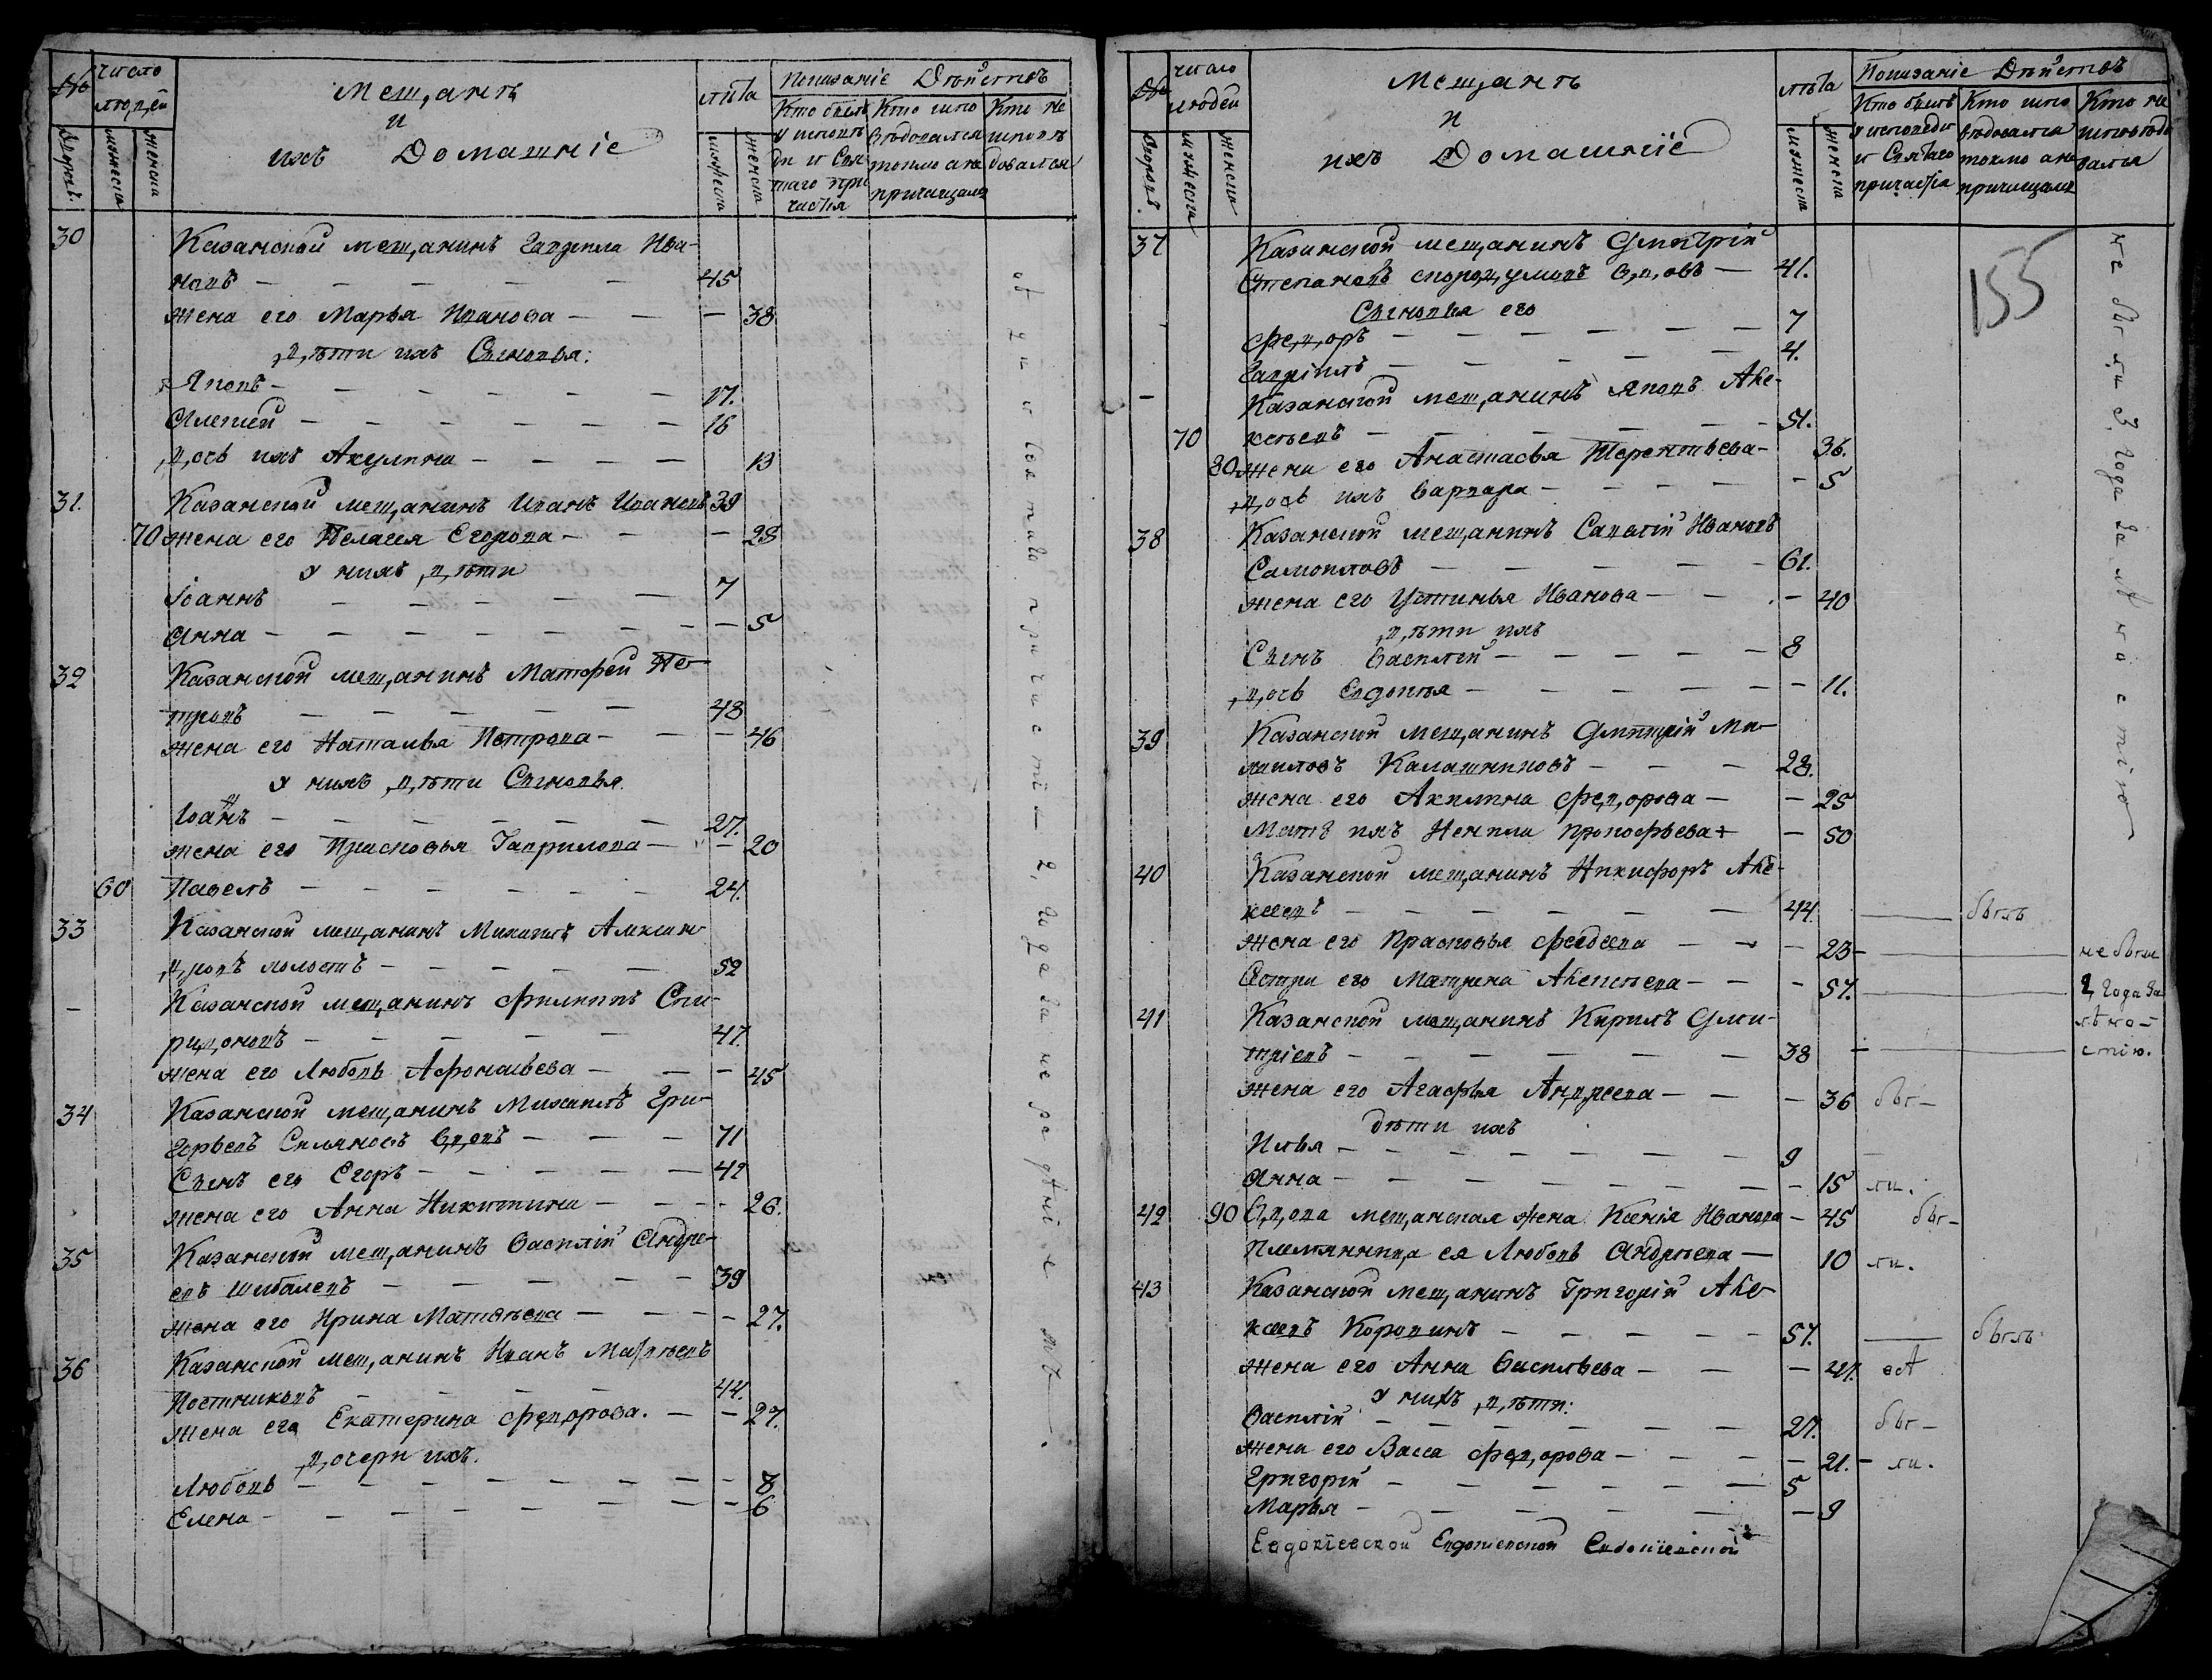 № число людей
Мещанъ
и
ихъ Домашніе
лѣта
Показаніе Дѣйствъ
Дворовъ.
мужеска
женска
мужеска
женска
Кто былъ у исповѣди и Святаго причастія
Кто исповѣдовался токмо а не причащался
Кто не исповѣдовался
30 Казанской мещанинъ Гаврила Ива-
новъ — 45
жена его Марья Иванова — 38
дѣти ихъ Сыновья:
Яковъ — 17.
Алексей — 16
дочь ихъ Акулина — 13
31. Казанской мещанинъ Иванъ Ивановъ 39
70 жена его Пелагея Егорова — 28
у нихъ дѣти
Іоаннъ — 7
Анна — 5
32 Казанской мещанинъ Матфей Пе-
тровъ — 48
жена его Наталья Петрова — 46
у нихъ дѣти Сыновья.
Иоанъ — 27.
жена его Прасковья Гаврилова — 20
60 Павелъ — 24.
33 Казанской мещанинъ Михаилъ Алексан-
дровъ холостъ — 52
— Казанской мещанинъ Филиппъ Спи-
ридоновъ — 47.
жена его Любовь Афонасьева — 45
34 Казанской мещанинъ Михаилъ Гри-
горьевъ вдовъ — 71
Сынъ его Егоръ — 42
жена его Анна Никитина — 26.
35 Казанской мещанинъ Василій Андре-
евъ Шибалевъ — 39
жена его Ирина Матвѣева — 27.
36 Казанской мещанинъ Иванъ Матвѣевъ
Постниковъ — 44.
жена его Екатерина Федорова. — 27.
дочери ихъ.
Любовь — 8
Елена — 6
№ число людей
Мещанъ
и
ихъ Домашніе
лѣта
Показаніе Дѣйствъ
Дворовъ.
мужеска
женска
мужеска
женска
Кто былъ у исповеди и Святаго причастія
Кто исповѣдовался токмо а не причащался
Кто не исповѣдовался
155
не были 3 года за лѣностію
37 Казанской мещанинъ Дмитрій
Степановъ вдовъ — 41.
Сыновья его
Федоръ — 7
Гавріилъ — 4.
— Казанской мещанинъ Яковъ Але-
70 ксѣевъ — 51.
80 жена его Анастасья Терентьева — 36.
дочь ихъ Варвара — 5
38 Казанской мещанинъ Савелій Ивановъ
Самойловъ — 61.
жена его Устинья Иванова — 40
дѣти ихъ
Сынъ Василей — 8
дочь Евдокья — 11.
39 Казанской мещанинъ Дмитрій Ми-
хаиловъ Калашниковъ — 28.
жена его Акилина Федорова — 25
Мать ихъ Ненила Прокофьева + — 50
40 Казанской мещанинъ Никифоръ Але-
ксеевъ — 44. — былъ
жена его Прасковья Фадеева — 23 — не были
Сестра его Матрена Алексѣева — 57. — 2 года за
41 Казанской мещанинъ Кирилъ Дми- лѣно-
тріевъ — 38 — стію.
жена его Агафья Андреева — 36 бы—
дѣти ихъ
Илья — 9
Анна — 15 ли.
42 90 Вдова мещанская жена Ксенія Иванова — 45 бы—
Племянница ея Любовь Андрѣева — 10 ли.
43 Казанской мещанинъ Григорій Але-
ксеевъ Коровинъ — 57. — былъ
жена его Анна Васильева — 47.
у нихъ дѣти:
Василій — 27. бы—
жена его Васса Федорова — 21. — ли.
Григорій — 5
Марья — 9
Евдокіевской Евдокіевской Евдокіевской